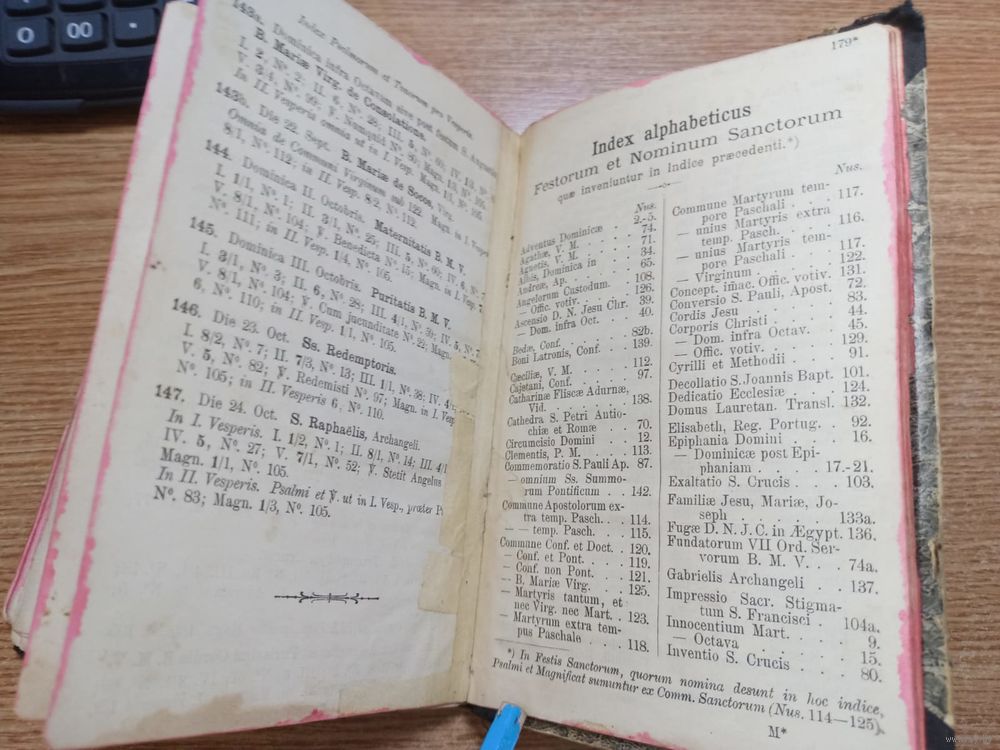 0
00
Index Psalmorum et Tonorum pro Vesperis.
143a. Dominica infra Octavam sive post festum S. Augustini
B. Mariæ Virg. de Consolatione.
I. 2, Nº. 2; II. 6, Nº. 28; III. 5, Nº. 60; IV.
V. 3/4, Nº.
In II. Vesperis omnia ut in I. Vesp. Magn. 1/3, Nº. 105.
143b. Die 22. Sept. B. Mariæ de Socos, Virg.
Omnia de Communi Virginum sub 122. Magn. in I. Vesp.
8/1, Nº. 112; in II. Vesp. 8/2, Nº. 112.
144. Dominica II. Octobris. Maternitatis B. M. V.
I. 1/1, Nº. 1; II. 3/1, Nº. 25; III. 5, Nº. 60; IV. 6, Nº.
V. 8/1, Nº. 104; V̇. Benedicta Nº. 15; Magn. in I. Vesp. 7
Nº. 111; in II. Vesp. 1/4, Nº. 105.
145. Dominica III. Octobris. Puritatis B. M. V.
I. 3/1, Nº. 3; II. 6, Nº. 28; III. 4/1, Nº. 39; IV. 5, Nº.
V. 8/1, Nº. 104; V̇. Cum jucunditate Nº. 22; Magn.
6, Nº. 110; in II. Vesp. 1/1, Nº. 105.
146. Die 23. Oct. Ss. Redemptoris.
I. 8/2, Nº. 7; II. 7/3, Nº. 13; III. 1/1, Nº. 38; IV. 4/1,
V. 5, Nº. 82; V̇. Redemisti Nº. 97; Magn. in I. Vesp.
Nº. 105; in II. Vesperis 6, Nº. 110.
147. Die 24. Oct. S. Raphaëlis, Archangeli.
In I. Vesperis. I. 1/2, Nº. 1; II. 8/1, Nº. 14; III. 4/1
IV. 5, Nº. 27; V. 7/1, Nº. 52; V̇. Stetit Angelus
Magn. 1/1, Nº. 105.
In II. Vesperis. Psalmi et V̇. ut in I. Vesp., præter
Nº. 83; Magn. 1/3, Nº. 105.
179*
Index alphabeticus
Festorum et Nominum Sanctorum
quæ inveniuntur in Indice præcedenti.*)
Nus.
Adventus Dominicæ . 2.-5.
Agathæ, V. M. . . . 74.
Agnetis, V. M. . . . 71.
Albis, Dominica in . . 34.
Andreæ, Ap. . . . 65.
Angelorum Custodum. 108.
— Offic. votiv. . . . 126.
Ascensio D. N. Jesu Chr. 39.
— Dom. infra Oct. . . 40.
Bedæ, Conf. . . . 82b.
Boni Latronis, Conf. . 139.
Cæciliæ, V. M. . . . 112.
Cajetani, Conf. . . . 97.
Catharinæ Fliscæ Adurnæ,
Vid. . . . . 138.
Cathedra S. Petri Antio-
chiæ et Romæ . . 70.
Circumcisio Domini . . 12.
Clementis, P. M. . . . 113.
Commemoratio S. Pauli Ap. 87.
— omnium Ss. Summo-
rum Pontificum . . 142.
Commune Apostolorum ex-
tra temp. Pasch. . . 114.
— — temp. Pasch. . . 115.
Commune Conf. et Doct. . 120.
— Conf. et Pont. . . . 119.
— Conf. non Pont. . . 121.
— B. Mariæ Virg. . . 125.
— Martyris tantum, et
nec Virg. nec Mart. . 123.
— Martyrum extra tem-
pus Paschale . . . 118.
Nus.
Commune Martyrum tem-
pore Paschali . . . 117.
— unius Martyris extra
temp. Pasch. . . . 116.
— unius Martyris tem-
pore Paschali . . . 117.
— Virginum . . . . 122.
Concept. imac. Offic. votiv. 131.
Conversio S. Pauli, Apost. 72.
Cordis Jesu . . . . 83.
Corporis Christi . . . 44.
— Dom. infra Octav. . 45.
— Offic. votiv. . . . 129.
Cyrilli et Methodii . . 91.
Decollatio S. Joannis Bapt. 101.
Dedicatio Ecclesiæ . . 124.
Domus Lauretan. Transl. 132.
Elisabeth, Reg. Portug. . 92.
Epiphania Domini . . . 16.
— Dominicæ post Epi-
phaniam . . . 17.-21.
Exaltatio S. Crucis . . . 103.
Familiæ Jesu, Mariæ, Jo-
seph . . . . . 133a.
Fugæ D. N. J. C. in Ægypt. 136.
Fundatorum VII Ord. Ser-
vorum B. M. V. . . 74a.
Gabrielis Archangeli . . 137.
Impressio Sacr. Stigma-
tum S. Francisci . . 104a.
Innocentium Mart. . . . 9.
— Octava . . . . . 15.
Inventio S. Crucis . . . 80.
*) In Festis Sanctorum, quorum nomina desunt in hoc indice,
Psalmi et Magnificat sumuntur ex Comm. Sanctorum (Nus. 114—125).
M*